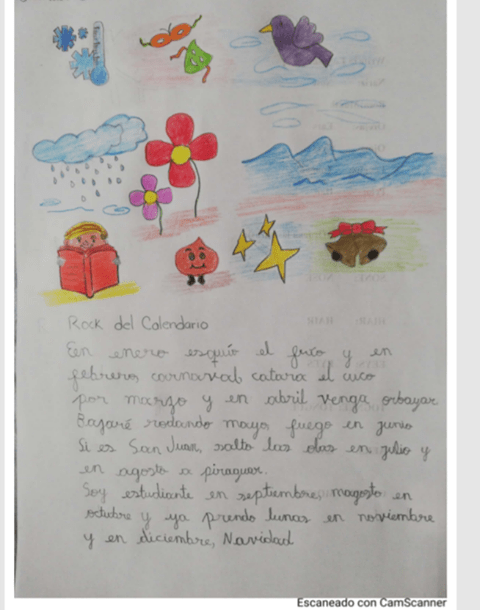 Rock del Calendario
En enero esquío el frío y en
febrero, carnaval catara el cuco
por marzo y en abril venga orbayar
Bajaré rodando mayo, fuego en junio
Si es San Juan, salto las olas en julio y
en agosto a piraguar.
Soy estudiante en septiembre, magosto en
octubre y ya prendo lunas en noviembre
y en diciembre, Navidad
Escaneado con CamScanner